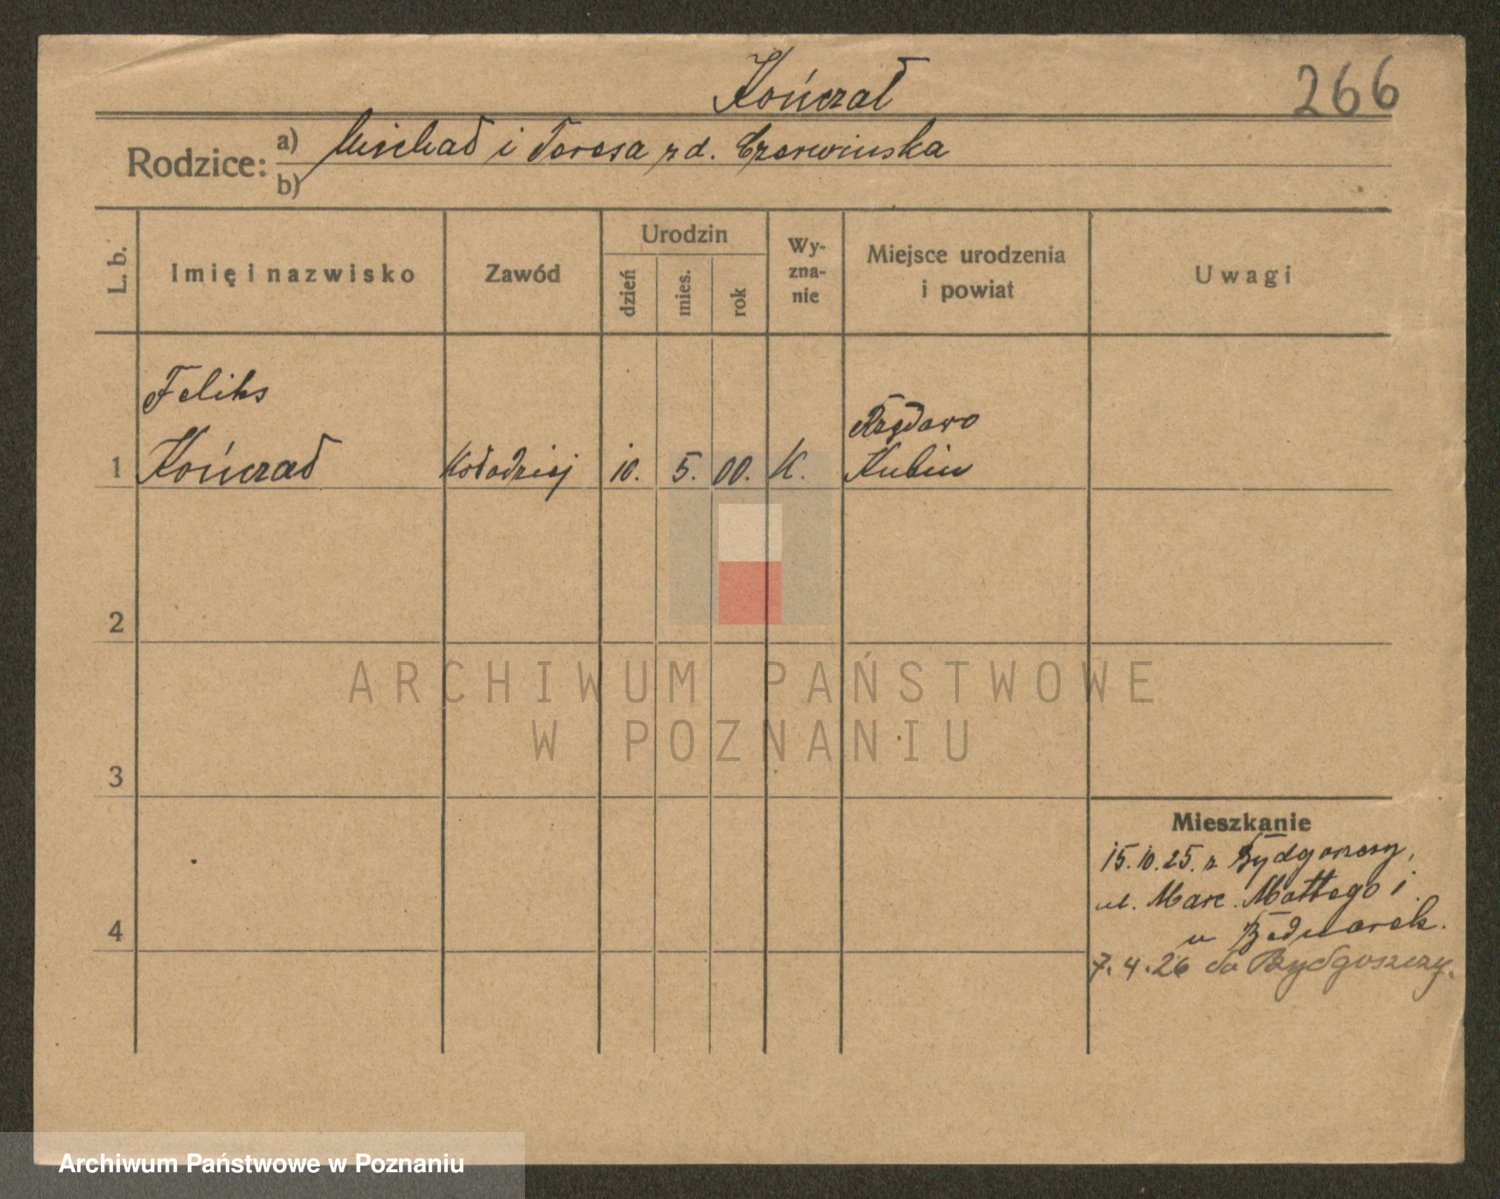 Kończał
266
Rodzice: a) Michał i Teresa zd. Czerwinska
b)
L. b.
Imię i nazwisko
Zawód
Urodzin
dzień
mies.
rok
Wy-
zna-
nie
Miejsce urodzenia
i powiat
Uwagi
Feliks
1 Kończał Kołodziej 10. 5. 00. K.
2
3
4
Mieszkanie
15.10.25. z Bydgoszczy,
ul. Marc. Mottego 1
u Bednarek.
7.4.26 do Bydgoszczy.
ARCHIWUM PAŃSTWOWE
W POZNANIU
Archiwum Państwowe w Poznaniu